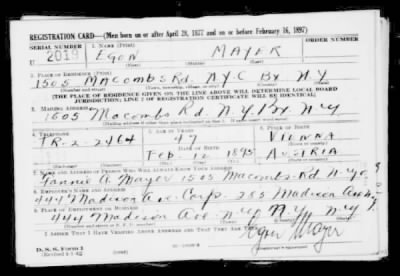 REGISTRATION CARD—(Men born on or after April 28, 1877 and on or before February 16, 1897)
SERIAL NUMBER 1. NAME (Print)
U 2019 EGON MAYER
2. PLACE OF RESIDENCE (Print)
1505 Macombs Rd. N.Y.C Bx. N.Y
(THE PLACE OF RESIDENCE GIVEN ON THE LINE ABOVE WILL DETERMINE LOCAL BOARD
JURISDICTION; LINE 2 OF REGISTRATION CERTIFICATE WILL BE IDENTICAL)
3. MAILING ADDRESS
1505 Macombs Rd. N.Y. Bx. N.Y
4. TELEPHONE 5. AGE IN YEARS 6. PLACE OF BIRTH
47 VIENNA
DATE OF BIRTH
TR-2-2464 Feb. 12 1895 AUSTRIA
7. NAME AND ADDRESS OF PERSON WHO WILL ALWAYS KNOW YOUR ADDRESS
Fannie A. Mayer 1505 Macombs Rd N.Y.C.
8. EMPLOYER'S NAME AND ADDRESS
444 Madison Ave. Corp. 285 Madison Ave
9. PLACE OF EMPLOYMENT OR BUSINESS
444 Madison Ave. N.Y. N.Y. N.Y.
I AFFIRM THAT I HAVE VERIFIED ABOVE ANSWERS AND THAT THEY ARE TRUE.
Egon Mayer
D. S. S. Form 1